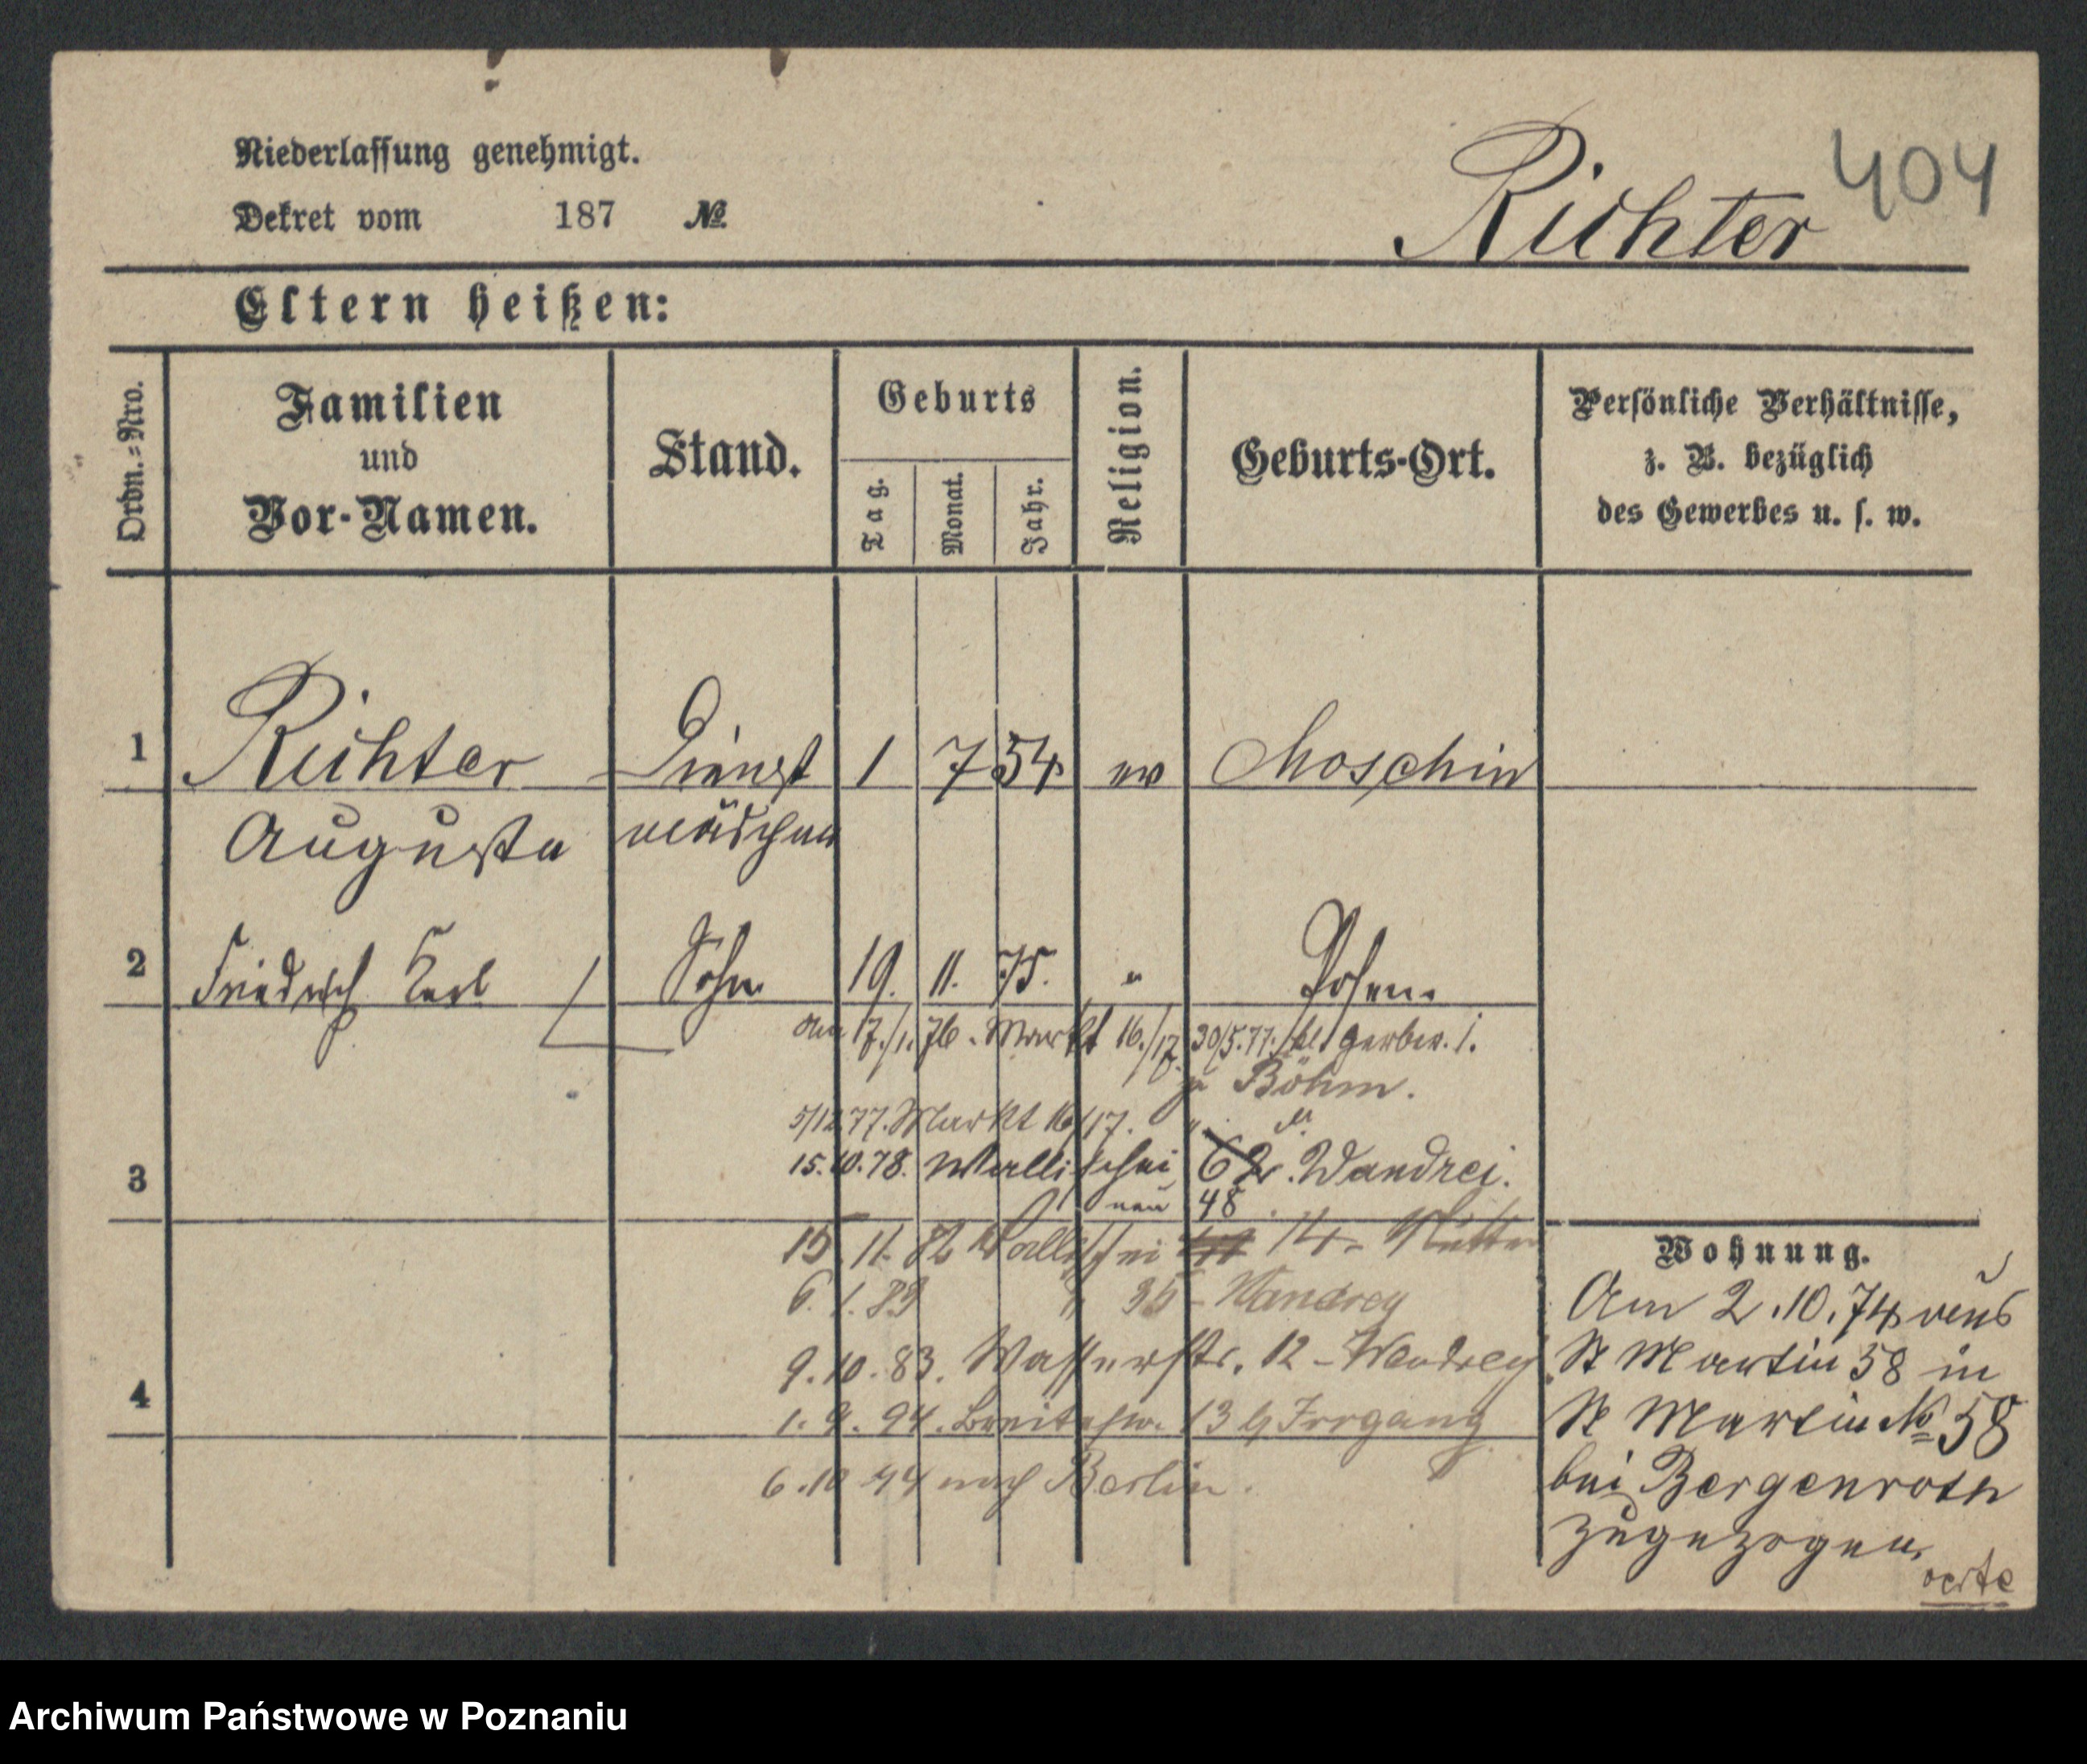 404
Niederlassung genehmigt.
Dekret vom 187 №
Richter
Eltern heißen:
Ordn.-Nro.
Familien
und
Vor-Namen.
Stand.
Geburts
Tag.
Monat.
Jahr.
Religion.
Geburts-Ort.
Persönliche Verhältnisse,
z. B. bezüglich
des Gewerbes u. s. w.
1 Richter Dienst 1 7 54 ev Moschin
Augusta mädchen
2 Friedrich Karl Sohn 19. 11. 75. " Posen.
am 17./1. 76. Markt 16./17. 30/5.77. kl. Gerber. 1.
Böhm.
5/12 77. Markt 16/17. "
3 15.10.78. Wallischei 62. Wandrei.
neu 48
15. 11. 82 Wallischei 14.
6. 1. 83 " 35 - Wandrey
9. 10. 83. Wasserstr. 12 - Wandrey
4 1. 9. 94. Breitestr. 13 b/ Irrgang
6. 10 94 nach Berlin.
Wohnung.
Am 2. 10. 74 aus
St Martin 58 in
St Martin № 58
bei Bergenroth
zugezogen.
Archiwum Państwowe w Poznaniu